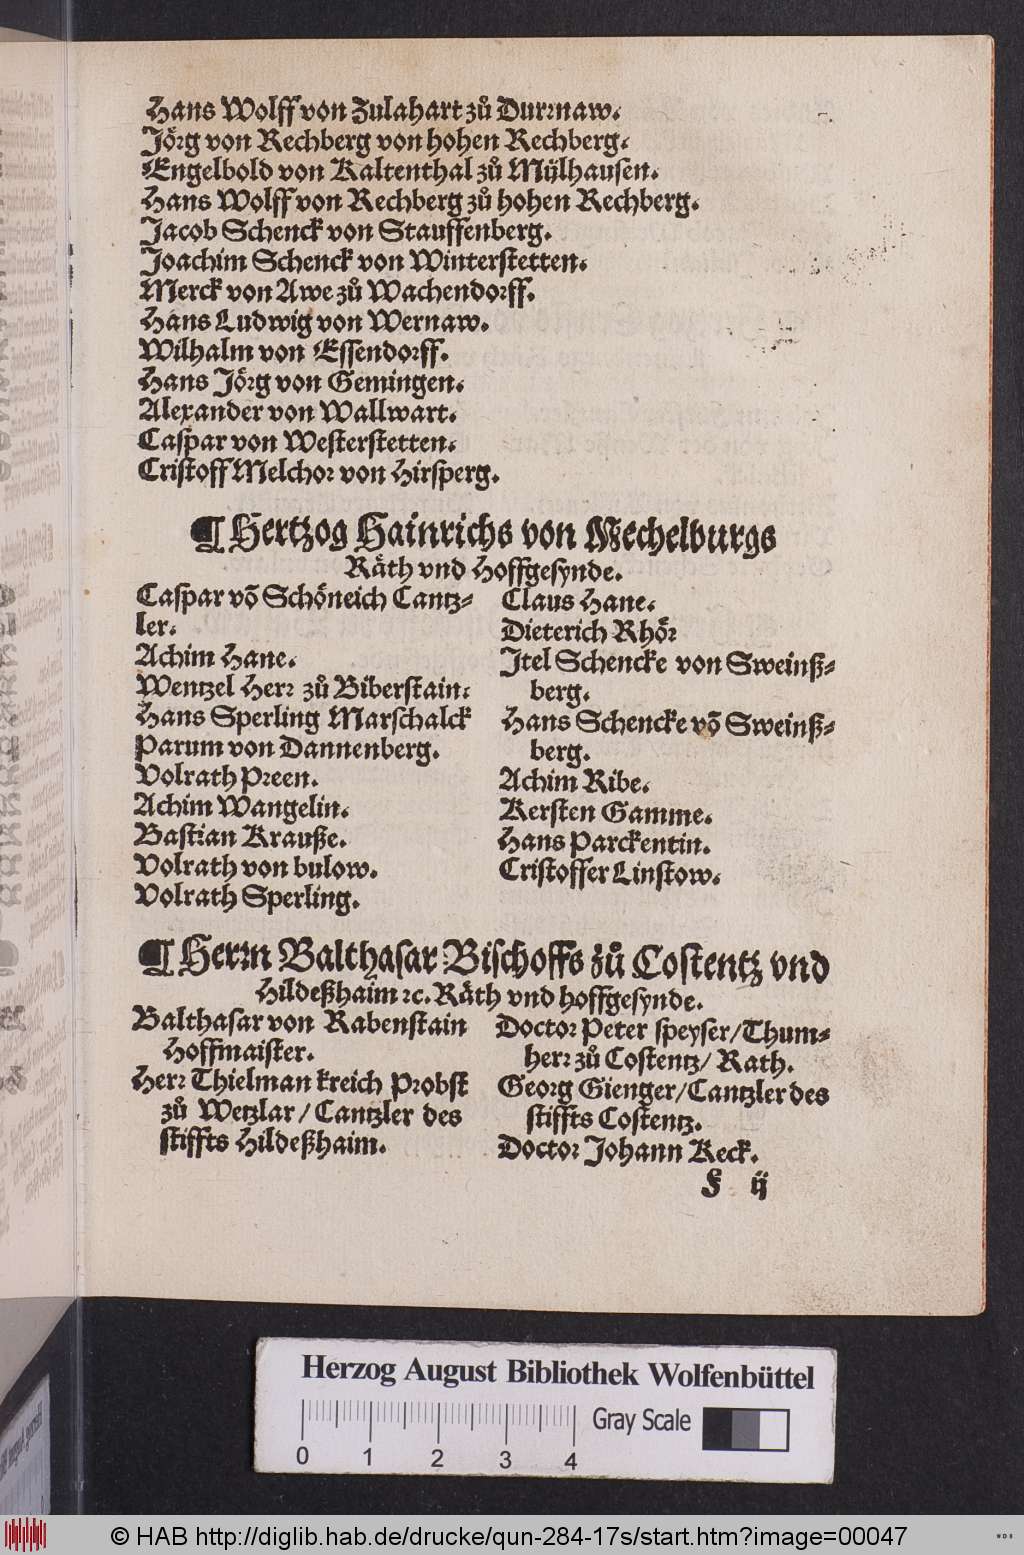 Hans Wolff von Zulahart zů Durrnaw.
Jörg von Rechberg von hohen Rechberg.
Engelbold von Kaltenthal zů Mülhausen.
Hans Wolff von Rechberg zů hohen Rechberg.
Jacob Schenck von Stauffenberg.
Joachim Schenck von Winterstetten.
Merck von Awe zů Wachendorff.
Hans Ludwig von Wernaw.
Wilhalm von Essendorff.
Hans Jörg von Gemingen.
Alexander von Wallwart.
Caspar von Westerstetten.
Cristoff Melchor von Hirsperg.
¶ Hertzog Hainrichs von Mechelburgs
Räth vnd Hoffgesynde.
Caspar võ Schöneich Cantz-
ler.
Achim Hane.
Wentzel Herr zů Biberstain.
Hans Sperling Marschalck
Parum von Dannenberg.
Volrath Preen.
Achim Wangelin.
Bastian Krauße.
Volrath von bulow.
Volrath Sperling.
Claus Hane.
Dieterich Rhör
Jtel Schencke von Sweinß-
berg.
Hans Schencke võ Sweinß-
berg.
Achim Ribe.
Kersten Gamme.
Hans Parckentin.
Cristoffer Linstow.
¶ Herrn Balthasar Bischoffs zů Costentz vnd
Hildeßhaim ꝛc. Räth vnd hoffgesynde.
Balthasar von Rabenstain
Hoffmaister.
Herr Thielman kreich Probst
zů Wetzlar / Cantzler des
stiffts Hildeßhaim.
Doctor Peter speyser / Thum-
herr zů Costentz / Rath.
Georg Gienger / Cantzler des
stiffts Costentz.
Doctor Johann Keck.
ij
Herzog August Bibliothek Wolfenbüttel
Gray Scale
0 1 2 3 4
© HAB http://diglib.hab.de/drucke/qun-284-17s/start.htm?image=00047